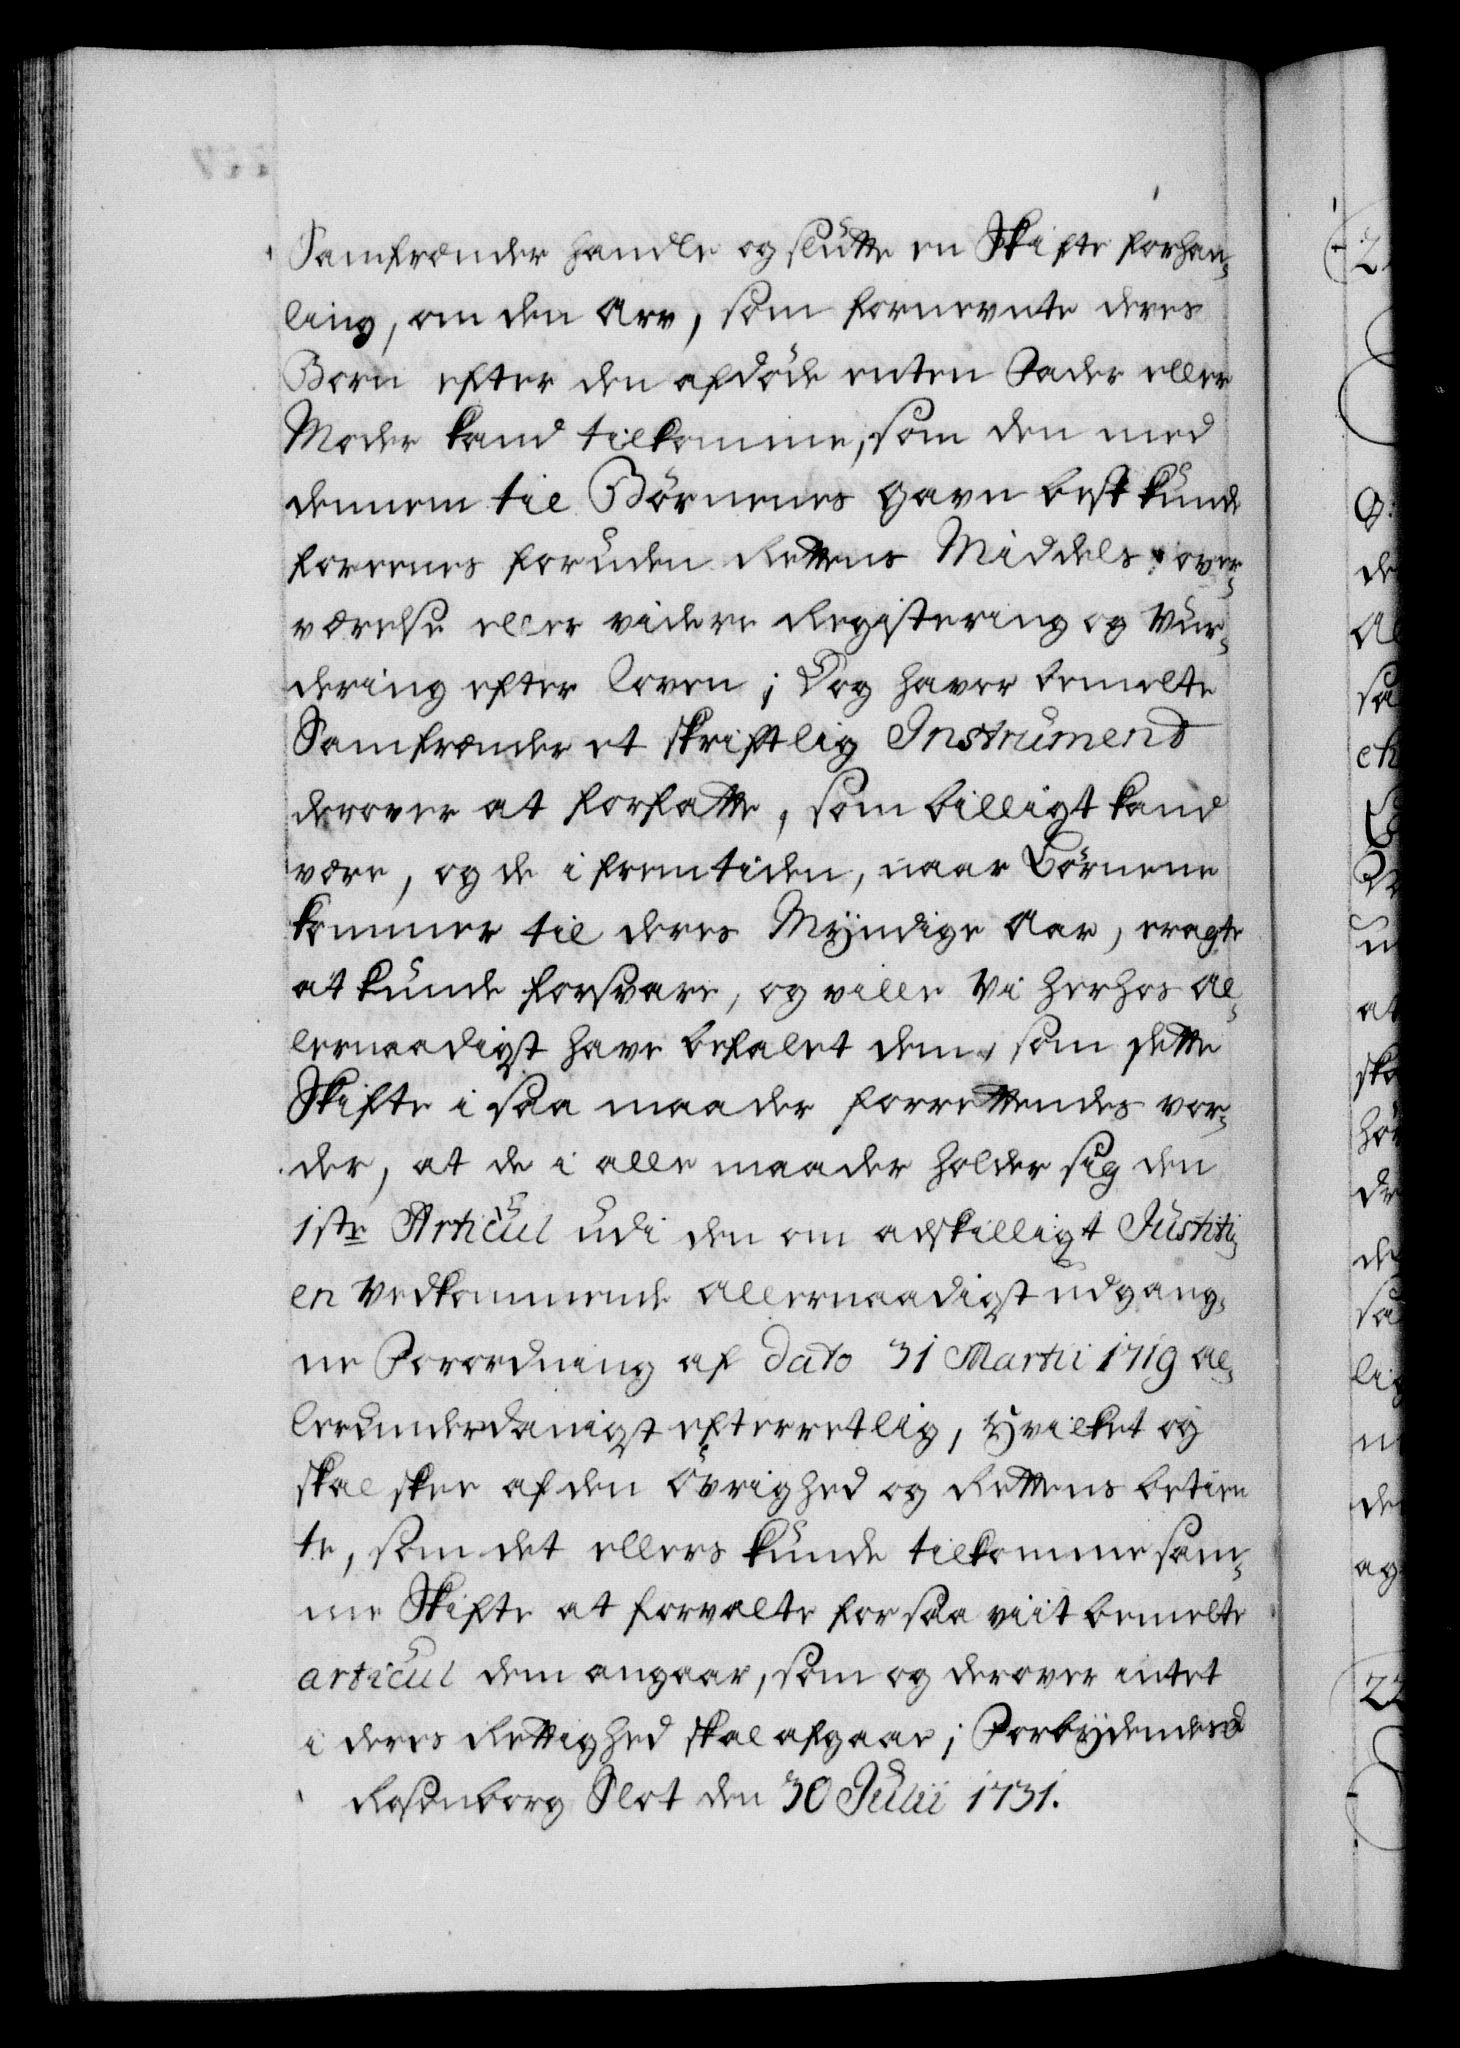 Samfrænder handle og slutte en Skifte forhan¬
ling, om den Arv, som fornevnte deres
Børn efter den afdøde enten Fader eller
Moder kand tilkomme, som den med
dennem til Börnenes gavn best kunde
foreenes foruden Rettens Middels over¬
værelse eller videre Registering og Vur¬
dering efter Loven; Dog haver bemelte
Samfrænder et skriftlig Instrument
derover at forfatte, som billigt kand
være, og de i fremtiden, naar Börnene
kommer til deres Myndige Aar, eragte
at kunde forsvare, og ville Vi herhos Al¬
lernaadigst have befalet dem, som dette
Skifte i saa maader forrettendes vor¬
der, at de i alle maader holder sig den
1ste Articul udi den om adskilligt Justiti¬
en Vedkommende Allernaadigst udgang¬
ne Forordning af dato 31 Martii 1719 al¬
lerunderdanigst efterretlig, Hvilket og
skal skee af den Övrighed og Rettens betien
te, som det ellers kunde tilkomme sam¬
me Skifte at forvalte for saa viit bemelte
articul dem angaar, som og derover intet
i deres Rettighed skal afgaae; Forbydendes
Rosenborg Slot den 30 Julii 1731.